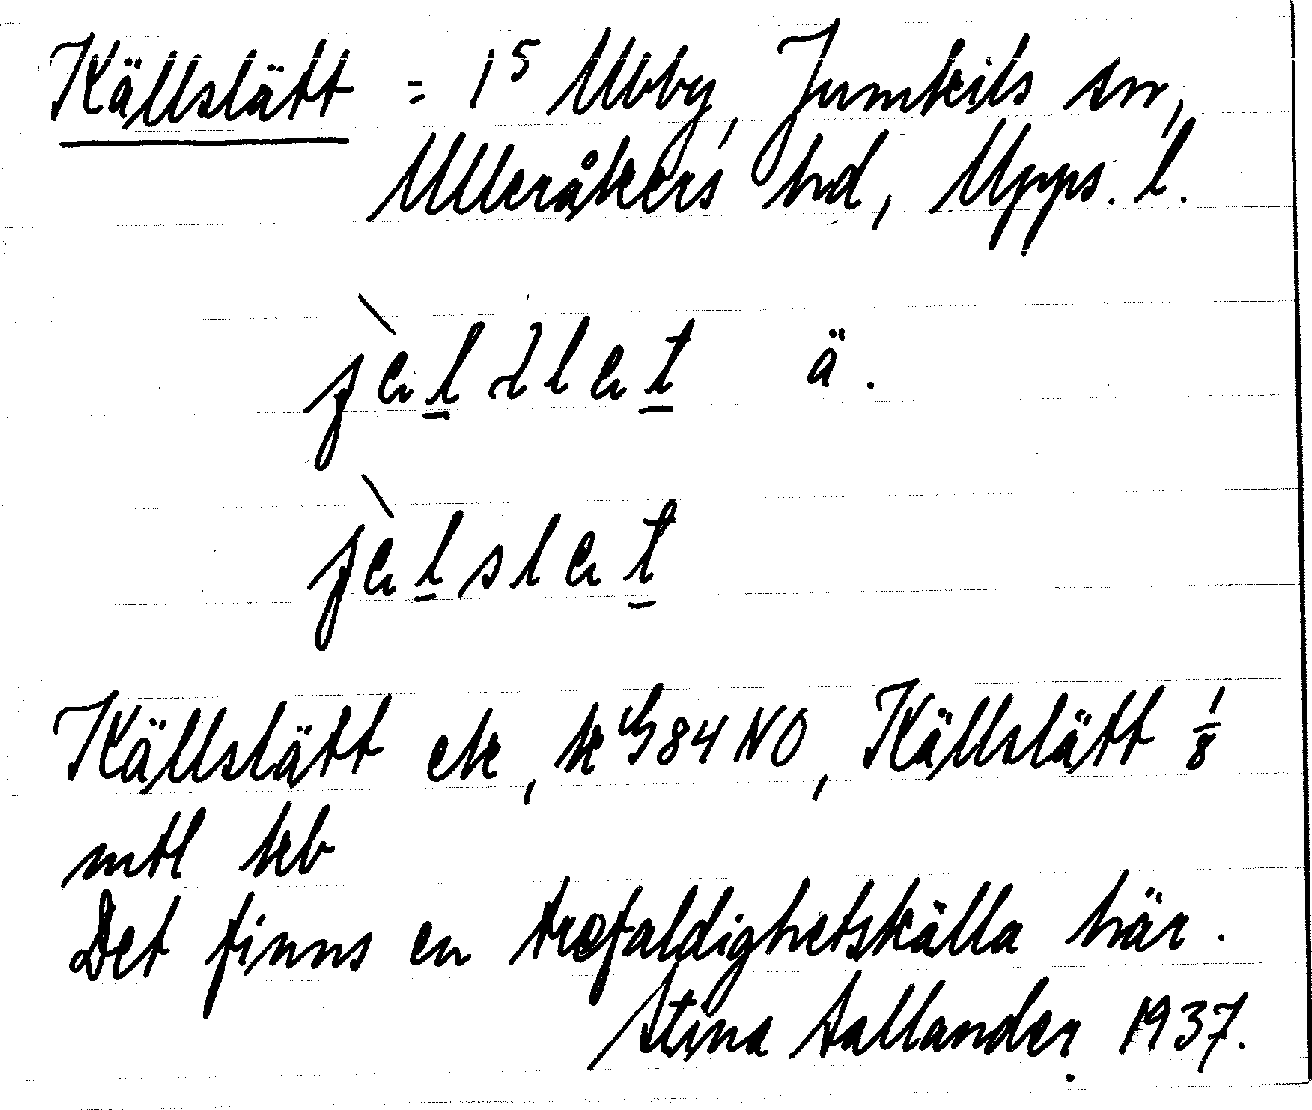 Källslätt = 1⁵ Ubby, Jumkils sn,
Ulleråkers hd, Upps. l.
ä.
Källslätt ek, k G 84 NO, Källslätt 1/8
mtl kb
Det finns en trefaldighetskälla här.
Stina Tallander 1937.